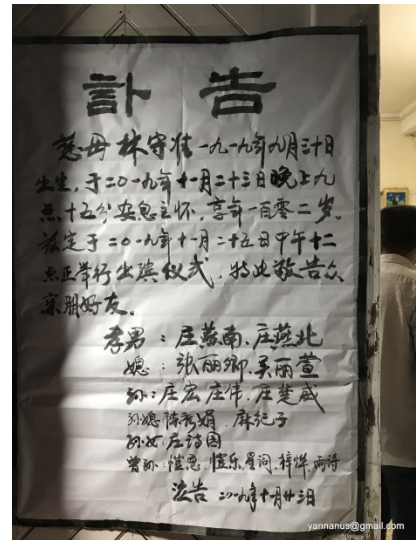 訃告
慈母林守惟一九一九年九月三十日
出生，于二〇一九年十一月二十三日晚上九
点十五分安息主怀，享年一百零二岁。
兹定于二〇一九年十一月二十五日中午十二
点正举行出殡仪式，特此敬告众
亲朋好友。
孝男：庄燕南、庄燕北
媳：张丽卿、吴丽萱
孙：庄宏、庄伟、庄楚威
孙媳：陈秀娟、麻纪子
孙女：庄诗园
曾孙：恺恩、恺乐、星词、梓烨、雨诗
泣告 二〇一九年十一月廿三日
yannanus@gmail.com